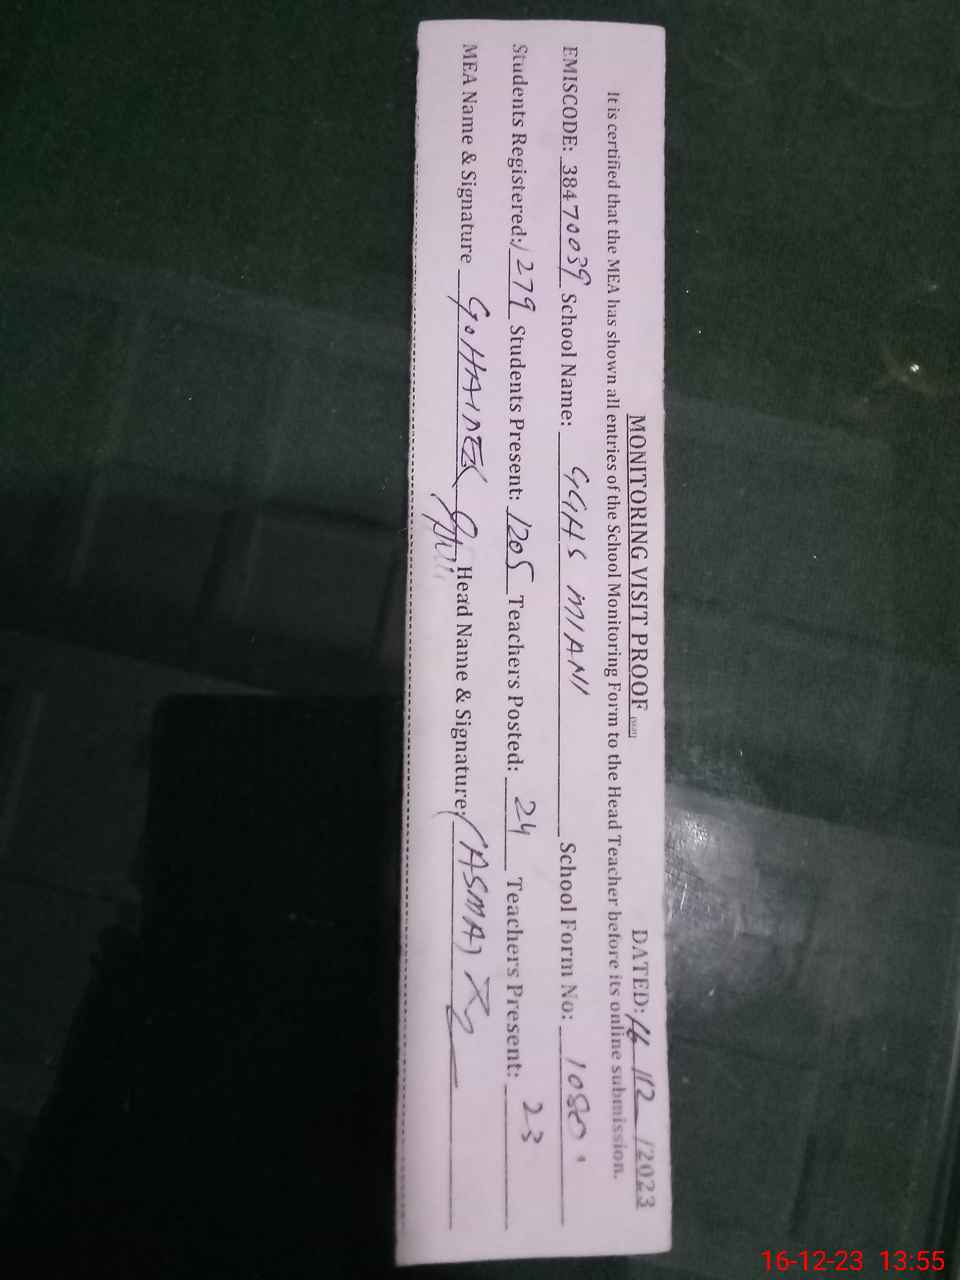 MONITORING VISIT PROOF
DATED: 16/12/2023
It is certified that the MEA has shown all entries of the School Monitoring Form to the Head Teacher before its online submission.
EMISCODE: 38470039 School Name: GGHS MIANI School Form No: 1080
Students Registered: 1279 Students Present: 1205 Teachers Posted: 24 Teachers Present: 23
MEA Name & Signature G. HAIDER Head Name & Signature: (ASMA)
16-12-23 13:55